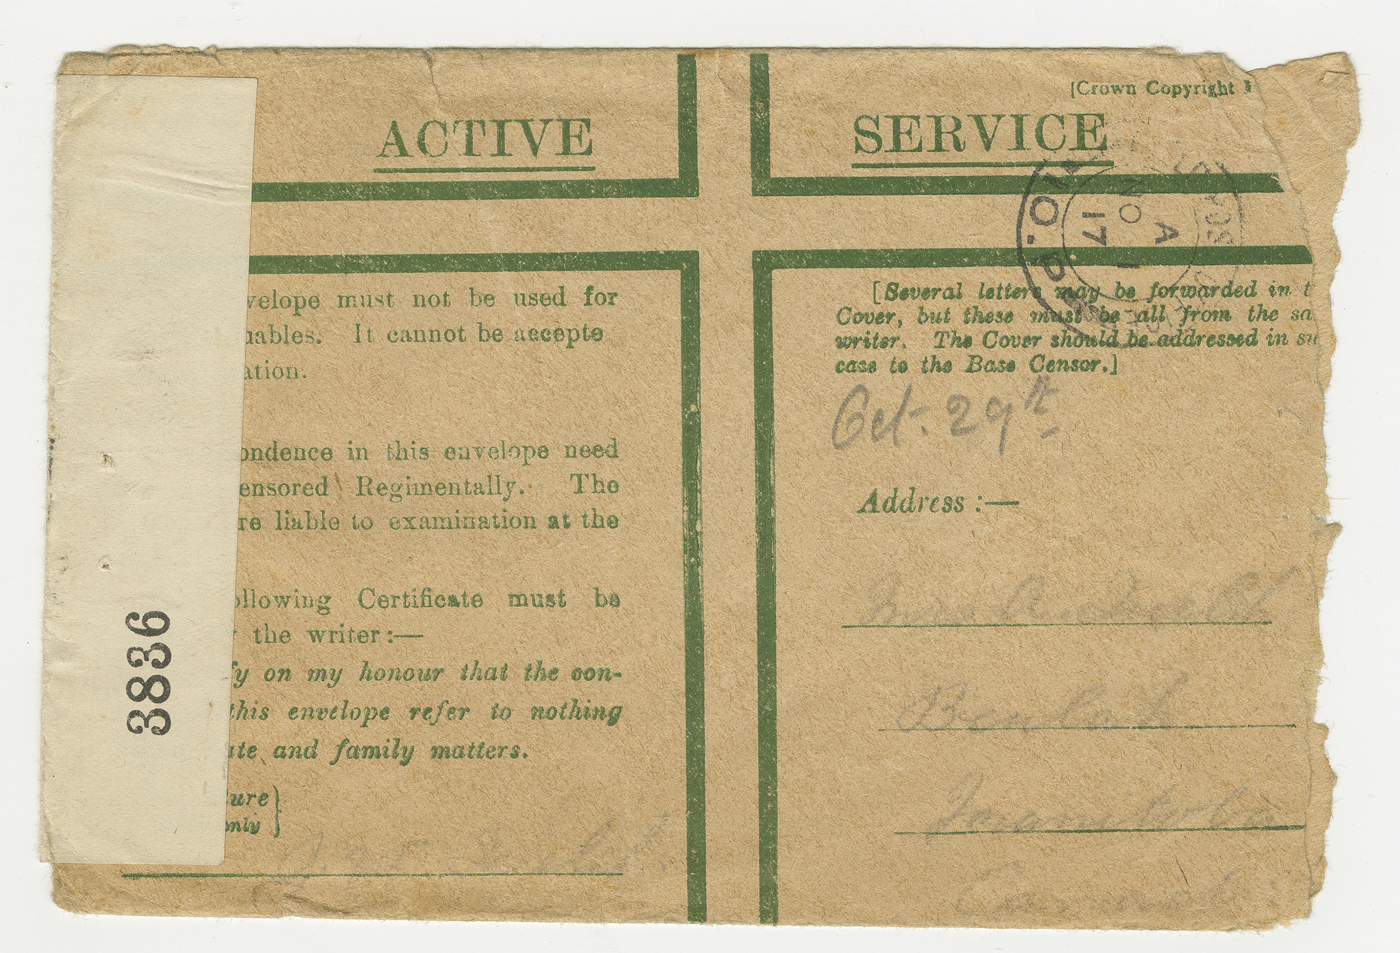 [Crown Copyright
ACTIVE SERVICE
velope must not be used for
uables. It cannot be accepte
ation.
ondence in this envelope need
ensored Regimentally. The
re liable to examination at the
ollowing Certificate must be
the writer:—
fy on my honour that the con-
this envelope refer to nothing
ate and family matters.
ure
only
3836
[Several letters may be forwarded in t
Cover, but these must be all from the sa
writer. The Cover should be addressed in su
case to the Base Censor.]
Oct. 29th
Address:—
Mrs
Beulah
Manitoba
Canada
A
NO 1
17